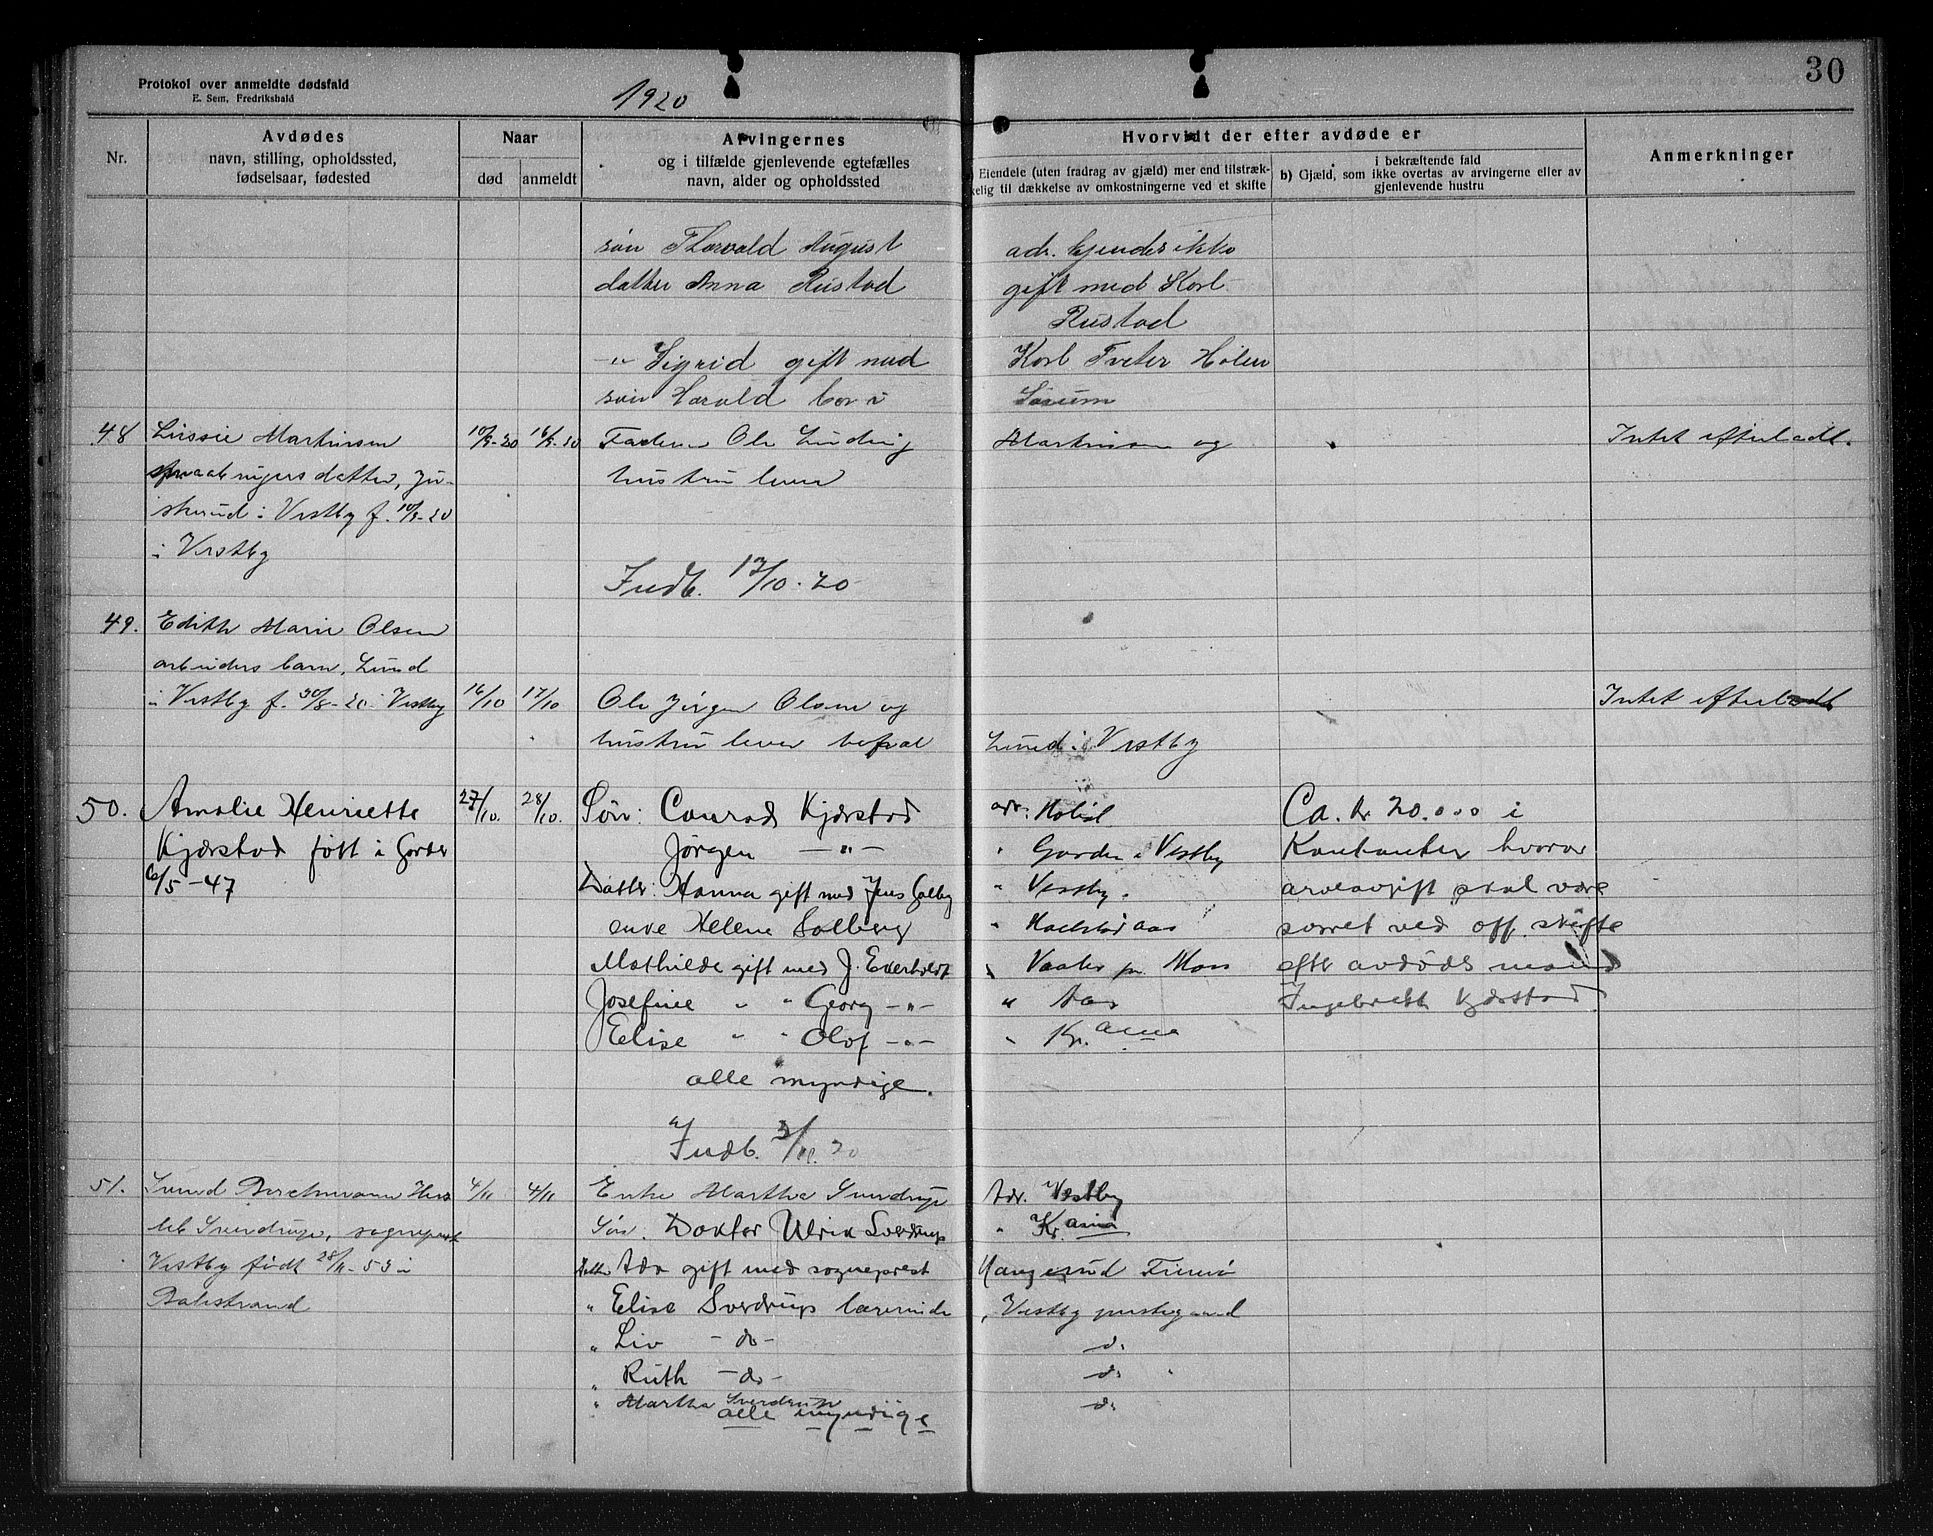 Protokol over anmeldte dødsfald
E. Sem, Fredrikshald
1920
30
Nr.
Avdødes
navn, stilling, opholdssted,
fødselsaar, fødested
Naar
død
anmeldt
Arvingernes
og i tilfælde gjenlevende egtefælles
navn, alder og opholdssted
Hvorvidt der efter avdøde er
Eiendele (uten fradrag av gjæld) mer end tilstræk-
kelig til dækkelse av omkostningerne ved et skifte
i bekræftende fald
b) Gjæld, som ikke overtas av arvingerne eller av
gjenlevende hustru
Anmerkninger
søn Thorvald August adr. kjendes ikke
datter Anna Rustad gift med Karl
Rustad
-"- Sigrid gift med Karl Tveter Hølen
søn Harald bor i
48 Lussie Martinsen 10/9-20 16/9-20 Faderen Ole Ludvig Martinsen og Intet efterladt.
smaabrugers datter, hustru lever
i Vestby f. 10/9-20
i Vestby
Indb. 17/10-20
49. Edith Marie Olsen
arbeiders barn, Lund
i Vestby f. 30/8-20 i Vestby 16/10 17/10 Ole Jørgen Olsen og Intet efterladt
hustru lever Lund i Vestby
50. Amalie Henriette 27/10. 28/10. Søn: Conrad Kjærstad adr: Ca. kr 20.000 i
Kjærstad født i Garder Jørgen -"- " Garder i Vestby Kontanter hvorav
6/5-47 Datter: Hanna gift med Jens Galby " Vestby. arveavgift skal være
enke Helene Solberg " svaret ved off. skifte
Mathilde gift med J. " Vaaler pr. Moss efter avdødes mand
Josefine " " Georg -"- " Aas Ingebrett Kjærstad
Elise " " Olof -"- " Kr.ania
alle myndige.
Indb. 3/11.20
51. 4/11 4/11 Enke Martha Sverdrup Adr. Vestby
Sverdrup, sogneprest Søn. Doktor Ulrik Sverdrup " Kr.ania
Vestby født 28/11-53 i Datter Ada gift med sogneprest
Balestrand " Elise Sverdrup lærerinde " Vestby prestegaard
" Liv -do- do
" Ruth -do- do
" Martha Sverdrup do
alle myndige